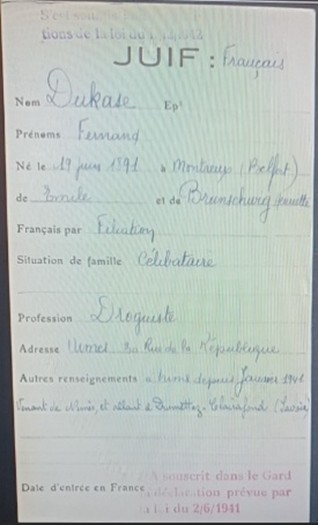 S'est soumis
tions de la loi du
JUIF : Français
Nom Dukase Ep
Prénoms Fernand
Né le 19 juin 1891 à Montreux (Belfort)
de Emile et de Brunschwig
Français par Filiation
Situation de famille Célibataire
Profession Droguiste
Adresse Nimes 30 Rue de la République
Autres renseignements à Nimes depuis Janvier 1941
Venant de et allant à
A souscrit dans le Gard
Date d'entrée en France la déclaration prévue par
la loi du 2/6/1941